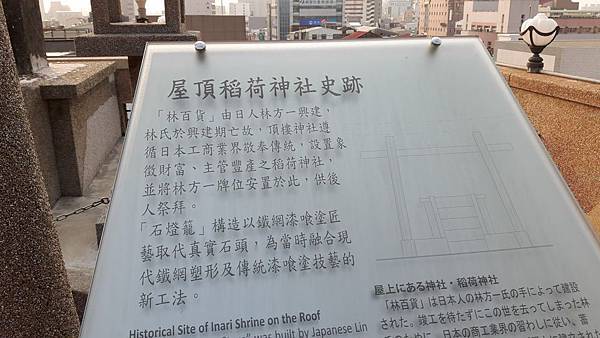 屋頂稻荷神社史跡
「林百貨」由日人林方一興建，
林氏於興建期亡故，頂樓神社遵
循日本工商業界敬奉傳統，設置象
徵財富、主管豐產之稻荷神社，
並將林方一牌位安置於此，供後
人祭拜。
「石燈籠」構造以鐵網漆喰塗匠
藝取代真實石頭，為當時融合現
代鐵網塑形及傳統漆喰塗技藝的
新工法。
Historical Site of Inari Shrine on the Roof
was built by Japanese Lin
屋上にある神社・稲荷神社
「林百貨」は日本人の林方一氏の手によって建設
された。竣工を待たずにこの世を去ってしまった林
日本の商工業界の習わしに従い、蓄